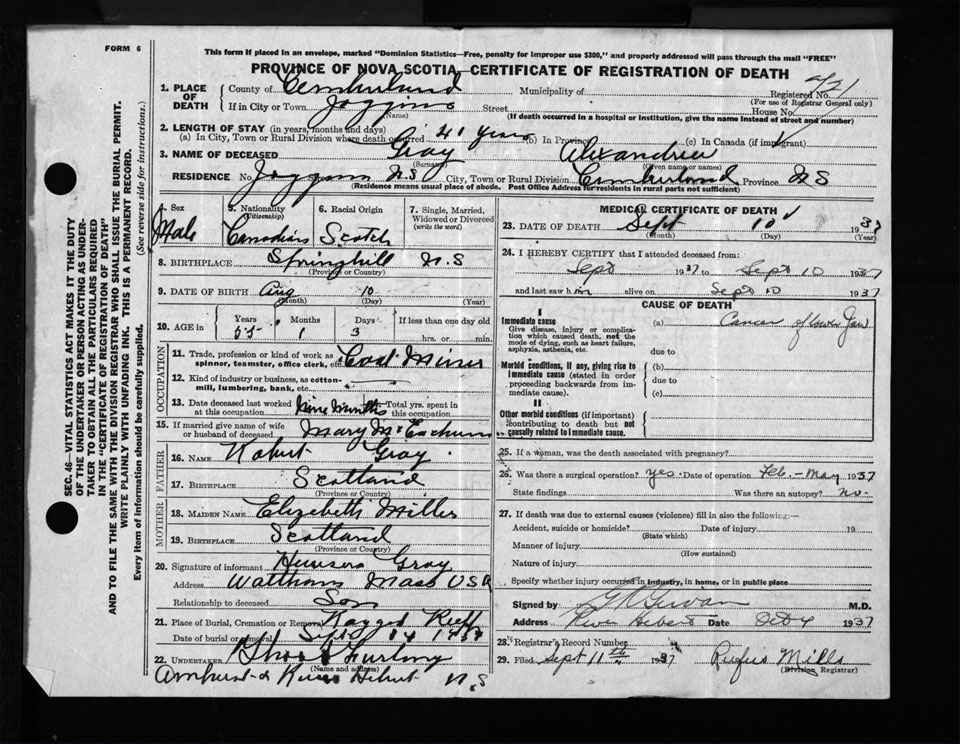 FORM 6
This form if placed in an envelope, marked "Dominion Statistics—Free, penalty for improper use $300," and properly addressed will pass through the mail "FREE"
PROVINCE OF NOVA SCOTIA—CERTIFICATE OF REGISTRATION OF DEATH
1. PLACE OF DEATH
County of Cumberland Municipality of Registered No.
(For use of Registrar General only)
If in City or Town Joggins Street House No.
(Name) (If death occurred in a hospital or institution, give the name instead of street and number)
2. LENGTH OF STAY (in years, months and days)
(a) In City, Town or Rural Division where death occurred 40 years (b) In Province (c) In Canada (if immigrant)
3. NAME OF DECEASED Gray Alexander
(Surname) (Given name or names)
RESIDENCE No. Joggins NS City, Town or Rural Division Cumberland Province NS
(Residence means usual place of abode. Post Office Address for residents in rural parts not sufficient)
4. Sex
Male
5. Nationality
(Citizenship)
Canadian
6. Racial Origin
Scotch
7. Single, Married, Widowed or Divorced
(write the word)
8. BIRTHPLACE Springhill N.S
(Province or Country)
9. DATE OF BIRTH Aug 10
(Month) (Day) (Year)
10. AGE in Years Months Days If less than one day old
55 1 3 hrs. or min.
OCCUPATION
11. Trade, profession or kind of work as spinner, teamster, office clerk, etc. Coal Miner
12. Kind of industry or business, as cotton-mill, lumbering, bank, etc.
13. Date deceased last worked at this occupation nine months Total yrs. spent in this occupation
15. If married give name of wife or husband of deceased Mary McEachern
FATHER
16. NAME Robert Gray
17. BIRTHPLACE Scotland
(Province or Country)
MOTHER
18. MAIDEN NAME Elizabeth Miller
19. BIRTHPLACE Scotland
(Province or Country)
20. Signature of informant Gray
Address Waltham Mass USA
Relationship to deceased Son
21. Place of Burial, Cremation or Removal Ragged Reef
Date of burial or removal Sept 14 1937
22. UNDERTAKER Furlong
(Name and address)
Amherst & River Hebert N.S
MEDICAL CERTIFICATE OF DEATH
23. DATE OF DEATH Sept 10 1937
(Month) (Day) (Year)
24. I HEREBY CERTIFY that I attended deceased from:
Sept 1937 to Sept 10 1937
and last saw him alive on Sept 10 1937
CAUSE OF DEATH
I
Immediate cause
Give disease, injury or complication which caused death, not the mode of dying, such as heart failure, asphyxia, asthenia, etc.
(a) Cancer of lower Jaw
due to
Morbid conditions, if any, giving rise to immediate cause (stated in order proceeding backwards from immediate cause).
(b)
due to
(c)
II
Other morbid conditions (if important) contributing to death but not causally related to immediate cause.
25. If a woman, was the death associated with pregnancy?
26. Was there a surgical operation? yes. Date of operation Feb.-May 1937
State findings Was there an autopsy? no.
27. If death was due to external causes (violence) fill in also the following:
Accident, suicide or homicide? Date of injury 19
(State which)
Manner of injury
(How sustained)
Nature of injury
Specify whether injury occurred in industry, in home, or in public place
Signed by M.D.
Address River Hebert Date Oct 4 1937
28. Registrar's Record Number
29. Filed Sept 11th 1937 Rufus Mills
(Division Registrar)
SEC. 46—VITAL STATISTICS ACT MAKES IT THE DUTY
OF THE UNDERTAKER OR PERSON ACTING AS UNDERTAKER TO OBTAIN ALL THE PARTICULARS REQUIRED
IN THE "CERTIFICATE OF REGISTRATION OF DEATH"
AND TO FILE THE SAME WITH THE DIVISION REGISTRAR WHO SHALL ISSUE THE BURIAL PERMIT.
WRITE PLAINLY WITH UNFADING INK. THIS IS A PERMANENT RECORD.
Every item of information should be carefully supplied. (See reverse side for instructions.)